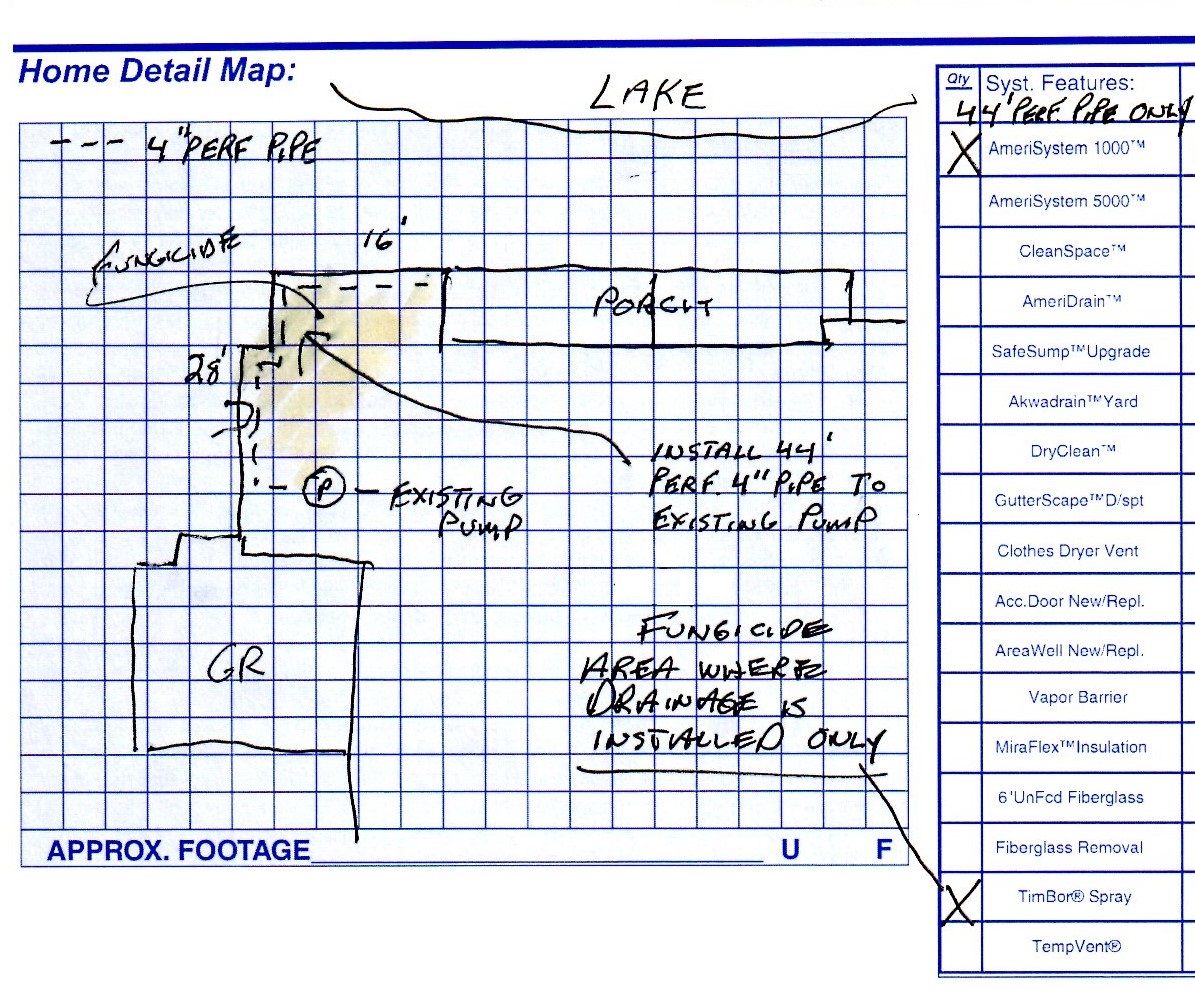 Home Detail Map:
LAKE
--- 4" PERF PIPE
FUNGICIDE
16'
PORCH
28'
INSTALL 44'
PERF. 4" PIPE TO
EXISTING PUMP
P
EXISTING
PUMP
GR
FUNGICIDE
AREA WHERE
DRAINAGE IS
INSTALLED ONLY
APPROX. FOOTAGE U F
Qty Syst. Features:
44' PERF. PIPE ONLY
X AmeriSystem 1000™
AmeriSystem 5000™
CleanSpace™
AmeriDrain™
SafeSump™Upgrade
Akwadrain™Yard
DryClean™
GutterScape™D/spt
Clothes Dryer Vent
Acc.Door New/Repl.
AreaWell New/Repl.
Vapor Barrier
MiraFlex™Insulation
6'UnFcd Fiberglass
Fiberglass Removal
X TimBor® Spray
TempVent®